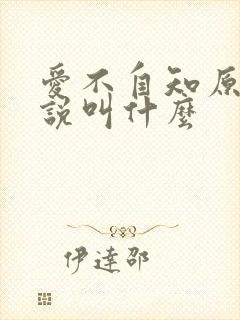 愛不自知原
說叫什麼
伊達邵